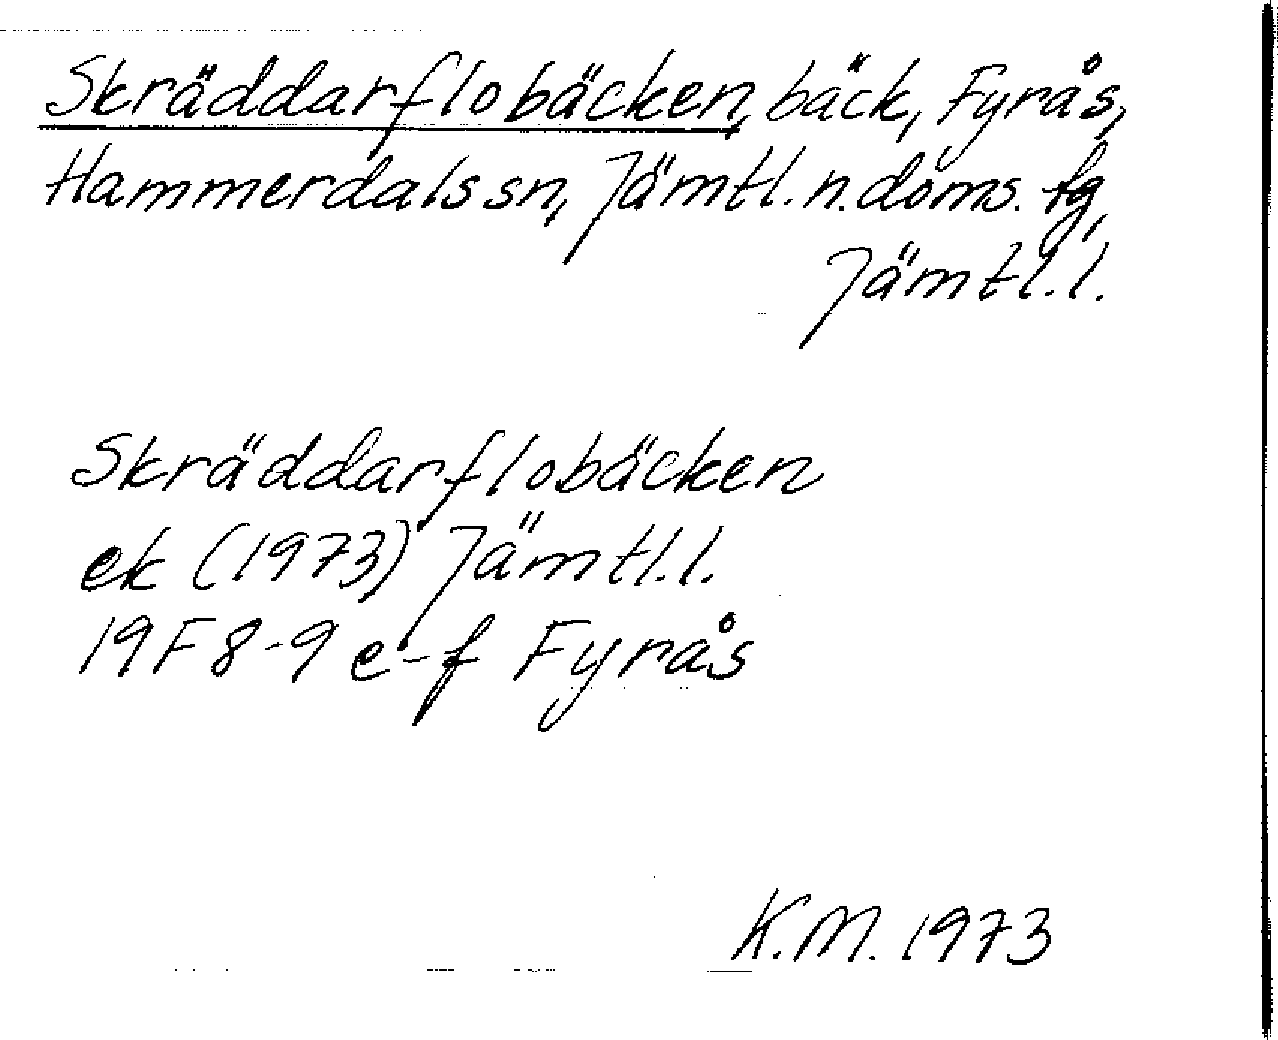 Skräddarflobäcken, bäck, Fyrås,
Hammerdals sn, Jämtl. n. doms. fg,
Jämtl. l.
Skräddarflobäcken
ek (1973) Jämtl. l.
19F 8-9 e-f Fyrås
K.M. 1973